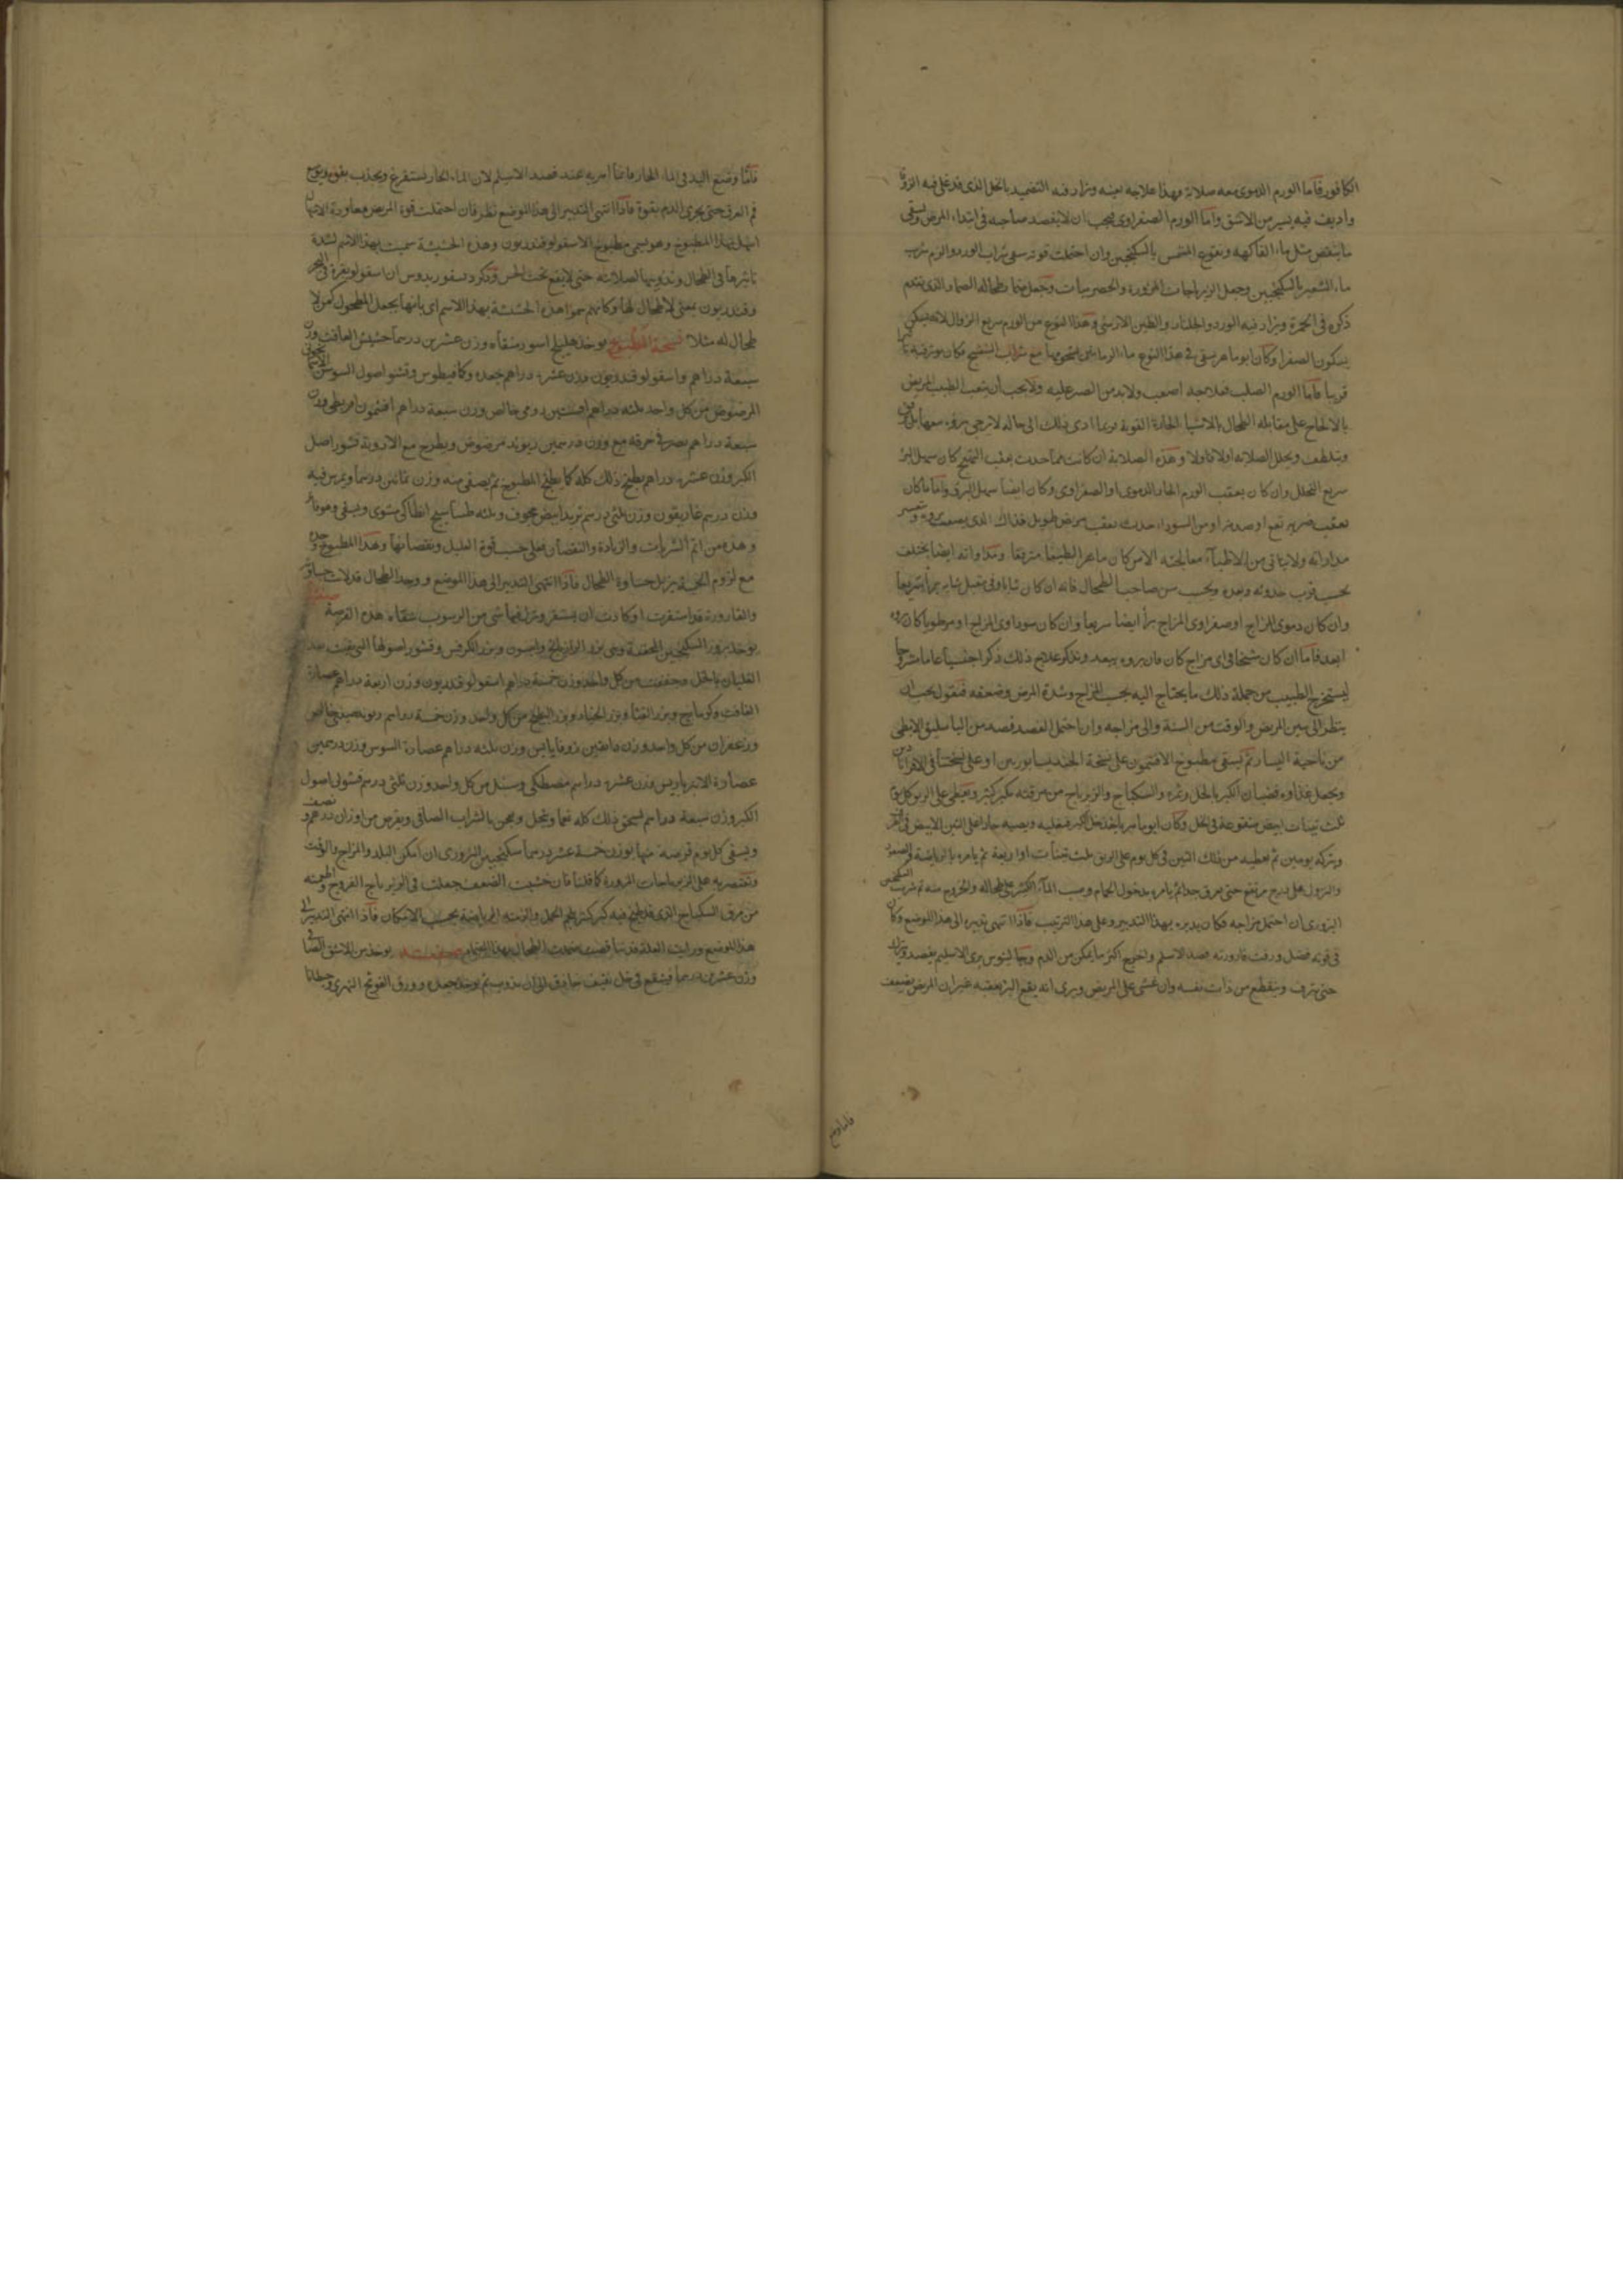 الكافور فاما الورم الدموى معه صلابة فهذا علاجه بعينه ويزاد فيه التضميد بالخل الذى قد غلى فيه
واديف فيه يسير من الاشق واما الورم الصفراوى فيجب ان لا يفصد صاحبه فى ابتداء المرض ويسقى
ما ينقض مثل ماء الفاكهة ونقوع المشمس بالسكنجبين وان احتملت قوته سقى شراب الورد والزم شرب
ماء الشعير بالسكنجبين وجعل الزيرباجات المزورة والحصرميات وتجعل على طحاله الضماد الذى تقدم
ذكره فى الحمرة ويزاد فيه الورد والجلنار والطين الارمنى وهذا النوع من الورم سريع الزوال
بسكون الصفرا وكان ابو ماهر يسقى فى هذا النوع ماء الرمانين بشحومها مع شراب البنفسج فكان يوثر فيه
قريبا فاما الورم الصلب فعلاجه اصعب ولابد من الصبر عليه ولا يجب ان يتعب الطبيب المريض
بالالحاح على مقابلة الطحال بالاشياء الحادة القوية فربما ادى ذلك الى حالة لا يرجى بروه معها بل
ويلطف ويحلل الصلابة اولا فاولا وهذه الصلابة ان كانت مما حدث بعقب التهيج كان سهل البرؤ
سريع التحلل وان كان بعقب الورم الحار الدموى او الصفراوى وكان ايضا سهل البرؤ واما ما كان
بعقب ضربة تقع او صدمة او من السوداء حدث بعقب مرض طويل فذاك الذى يصعب بروه ويعسر
مداواته ولا يتاتى من الاطباء معالجته الا من كان ماهرا لطيفا مترفقا ومداواته ايضا يختلف
بحسب قرب حدوثه وبعده وبحسب سن صاحب الطحال فانه ان كان شابا وفى مقبل شبابه برأ سريعا
وان كان دموى المزاج او صفراوى المزاج برأ ايضا سريعا وان كان سوداوى المزاج او مرطوبا كان بروه
ابعد فاما ان كان شيخا فى اى مزاج كان فان بروه يبعد ونذكر علاج ذلك ذكرا عاما مشروحا
ليستخرج الطبيب من جملة ذلك ما يحتاج اليه بحسب المزاج وشدة المرض وضعفه فنقول يجب ان
ينظر الى سن المريض والوقت من السنة والى مزاجه وان احتمل الفصد فصد من الباسليق الابطى
من ناحية اليسار ثم يسقى مطبوخ الافتيمون على نسخة الجنديسابوريين او على نسختنا فى الاقراباذين
ويجعل غذاؤه قضبان الكبر بالخل وثمره والسكباج والزيرباج من مرقته بكبر كثير ويعطى على الريق كل يوم
ثلث تينات ابيض منقوعة فى الخل وكان ابو ماهر ياخذ خل الكبر فيغليه ويصبه حارا على التين الابيض
ويتركه يومين ثم يعطيه من ذلك التين فى كل يوم على الريق ثلث تينات او اربعة ثم يامره بالرياضة والصعود
والنزول على درج مرتفع حتى يعرق جدا ثم يامره بدخول الحمام وصب الماء الكثير على طحاله والخروج منه ثم شرب السكنجبين
البزورى ان احتمل مزاجه فكان يدبره بهذا التدبير وعلى هذا الترتيب فاذا انتهى تدبيره الى هذا الموضع وكان
فى قوته فضل ورقت قارورته فصد الاسيلم واخرج اكثر ما يمكن من الدم وجالينوس يرى الاسيلم يفصد ويترك
حتى ينزف وينقطع من ذات نفسه وان غشى على المريض ويرى انه يقع البرؤ بعقبه غير ان المريض يضعف
فاما وضع
فاما وضع اليد فى الماء الحار فانما امر به عند فصد الاسيلم لان الماء الحار يستفرغ ويجذب بقوة ويوسع
فم العرق حتى يجرى الدم بقوة فاذا انتهى التدبير الى هذا الموضع نظر فان احتملت قوة المريض معاودة الاسهال
اسهل بهذا المطبوخ وهو يسمى مطبوخ الاسقولوقندريون وهذه الحشيشة سميت بهذا الاسم لشدة
تاثيرها فى الطحال وتذويبها لصلابته حتى لا يقع تحت الحس وذكر دسقوريدوس ان اسقولو بقرة
وقندريون بمعنى لا طحال لها وكانهم سموا هذه الحشيشة بهذا الاسم اى بانها تجعل المطحول كمن لا
طحال له مثلا نسخة المطبوخ يوخذ هليلج اسود منقاه وزن عشرين درهما حشيش الغافت وزن
سبعة دراهم واسقولوقندريون وزن عشرة دراهم جعدة وكمافيطوس وقشور اصول السوس
المرضوض من كل واحد ثلثه دراهم افسنتين رومى خالص وزن سبعة دراهم افتيمون اقريطى وزن
سبعة دراهم يصر فى خرقة مع وزن درهمين ريوند مرضوض ويطرح مع الادوية قشور اصل
الكبر وزن عشرة دراهم يطبخ ذلك كله كما يطبخ المطبوخ ثم يصفى منه وزن ثمانين درهما ويمرس فيه
وزن درهم غاريقون وزن ثلثى درهم تربد ابيض مجوف وثلثه طسا سيج انطاكى مشوى ويسقى وهو فاتر
وهذه من اتم الشربات والزيادة والنقصان فعلى حسب قوة العليل ونقصانها وهذا المطبوخ وحده
مع لزوم الحمية يزيل جساوة الطحال فاذا انتهى التدبير الى هذا الموضع ووجد الطحال قد لانت جساوته
والقارورة قد استقرت او كادت ان تستقر ونزل فيها شى من الرسوب سقاه هذه القرصة صفتها
يوخذ بزور السكنجبين المجففة وهى بزر الرازيانج وانيسون وبزر الكرفس وقشور اصولها التى بقيت بعد
الغليان بالخل وجففت من كل واحد وزن خمسة دراهم اسقولوقندريون وزن اربعة دراهم عصارة
الغافت وكزمازج وبزر القثا وبزر الخيار وبزر البطيخ من كل واحد وزن خمسة دراهم ريوند صينى خالص
وزعفران من كل واحد وزن دانقين زوفا يابس وزن ثلثه دراهم عصارة السوس وزن درهمين
عصارة الانبرباريس وزن عشرة دراهم مصطكى وسنبل من كل واحد وزن ثلثى درهم قشور اصول
الكبر وزن سبعة دراهم يسحق ذلك كله نعما وينخل ويعجن بالشراب الصافى ويقرص من اوزان درهم ونصف
ويسقى كل يوم قرصة منها بوزن خمسة عشر درهما سكنجبين البزورى ان امكن البلد والمزاج والوقت
وتقتصر به على الزيرباجات المزورة كما قلنا فان خشيت الضعف جعلت فى الزيرباج الفروج واطعمته
من مرق السكباج الذى قد طبخ فيه كبر كثير بلحم الحمل والزمته الرياضة بحسب الامكان فاذا انتهى التدبير الى
هذا الموضع ورايت العلة قد تناقصت ضمدت الطحال بهذا الضماد صفته يوخذ من الاشق الصافى
وزن عشرين درهما فينقع فى خل ثقيف حاذق الى ان يذوب ثم يوخذ جعدة وورق الفوتنج النهرى وحطبا